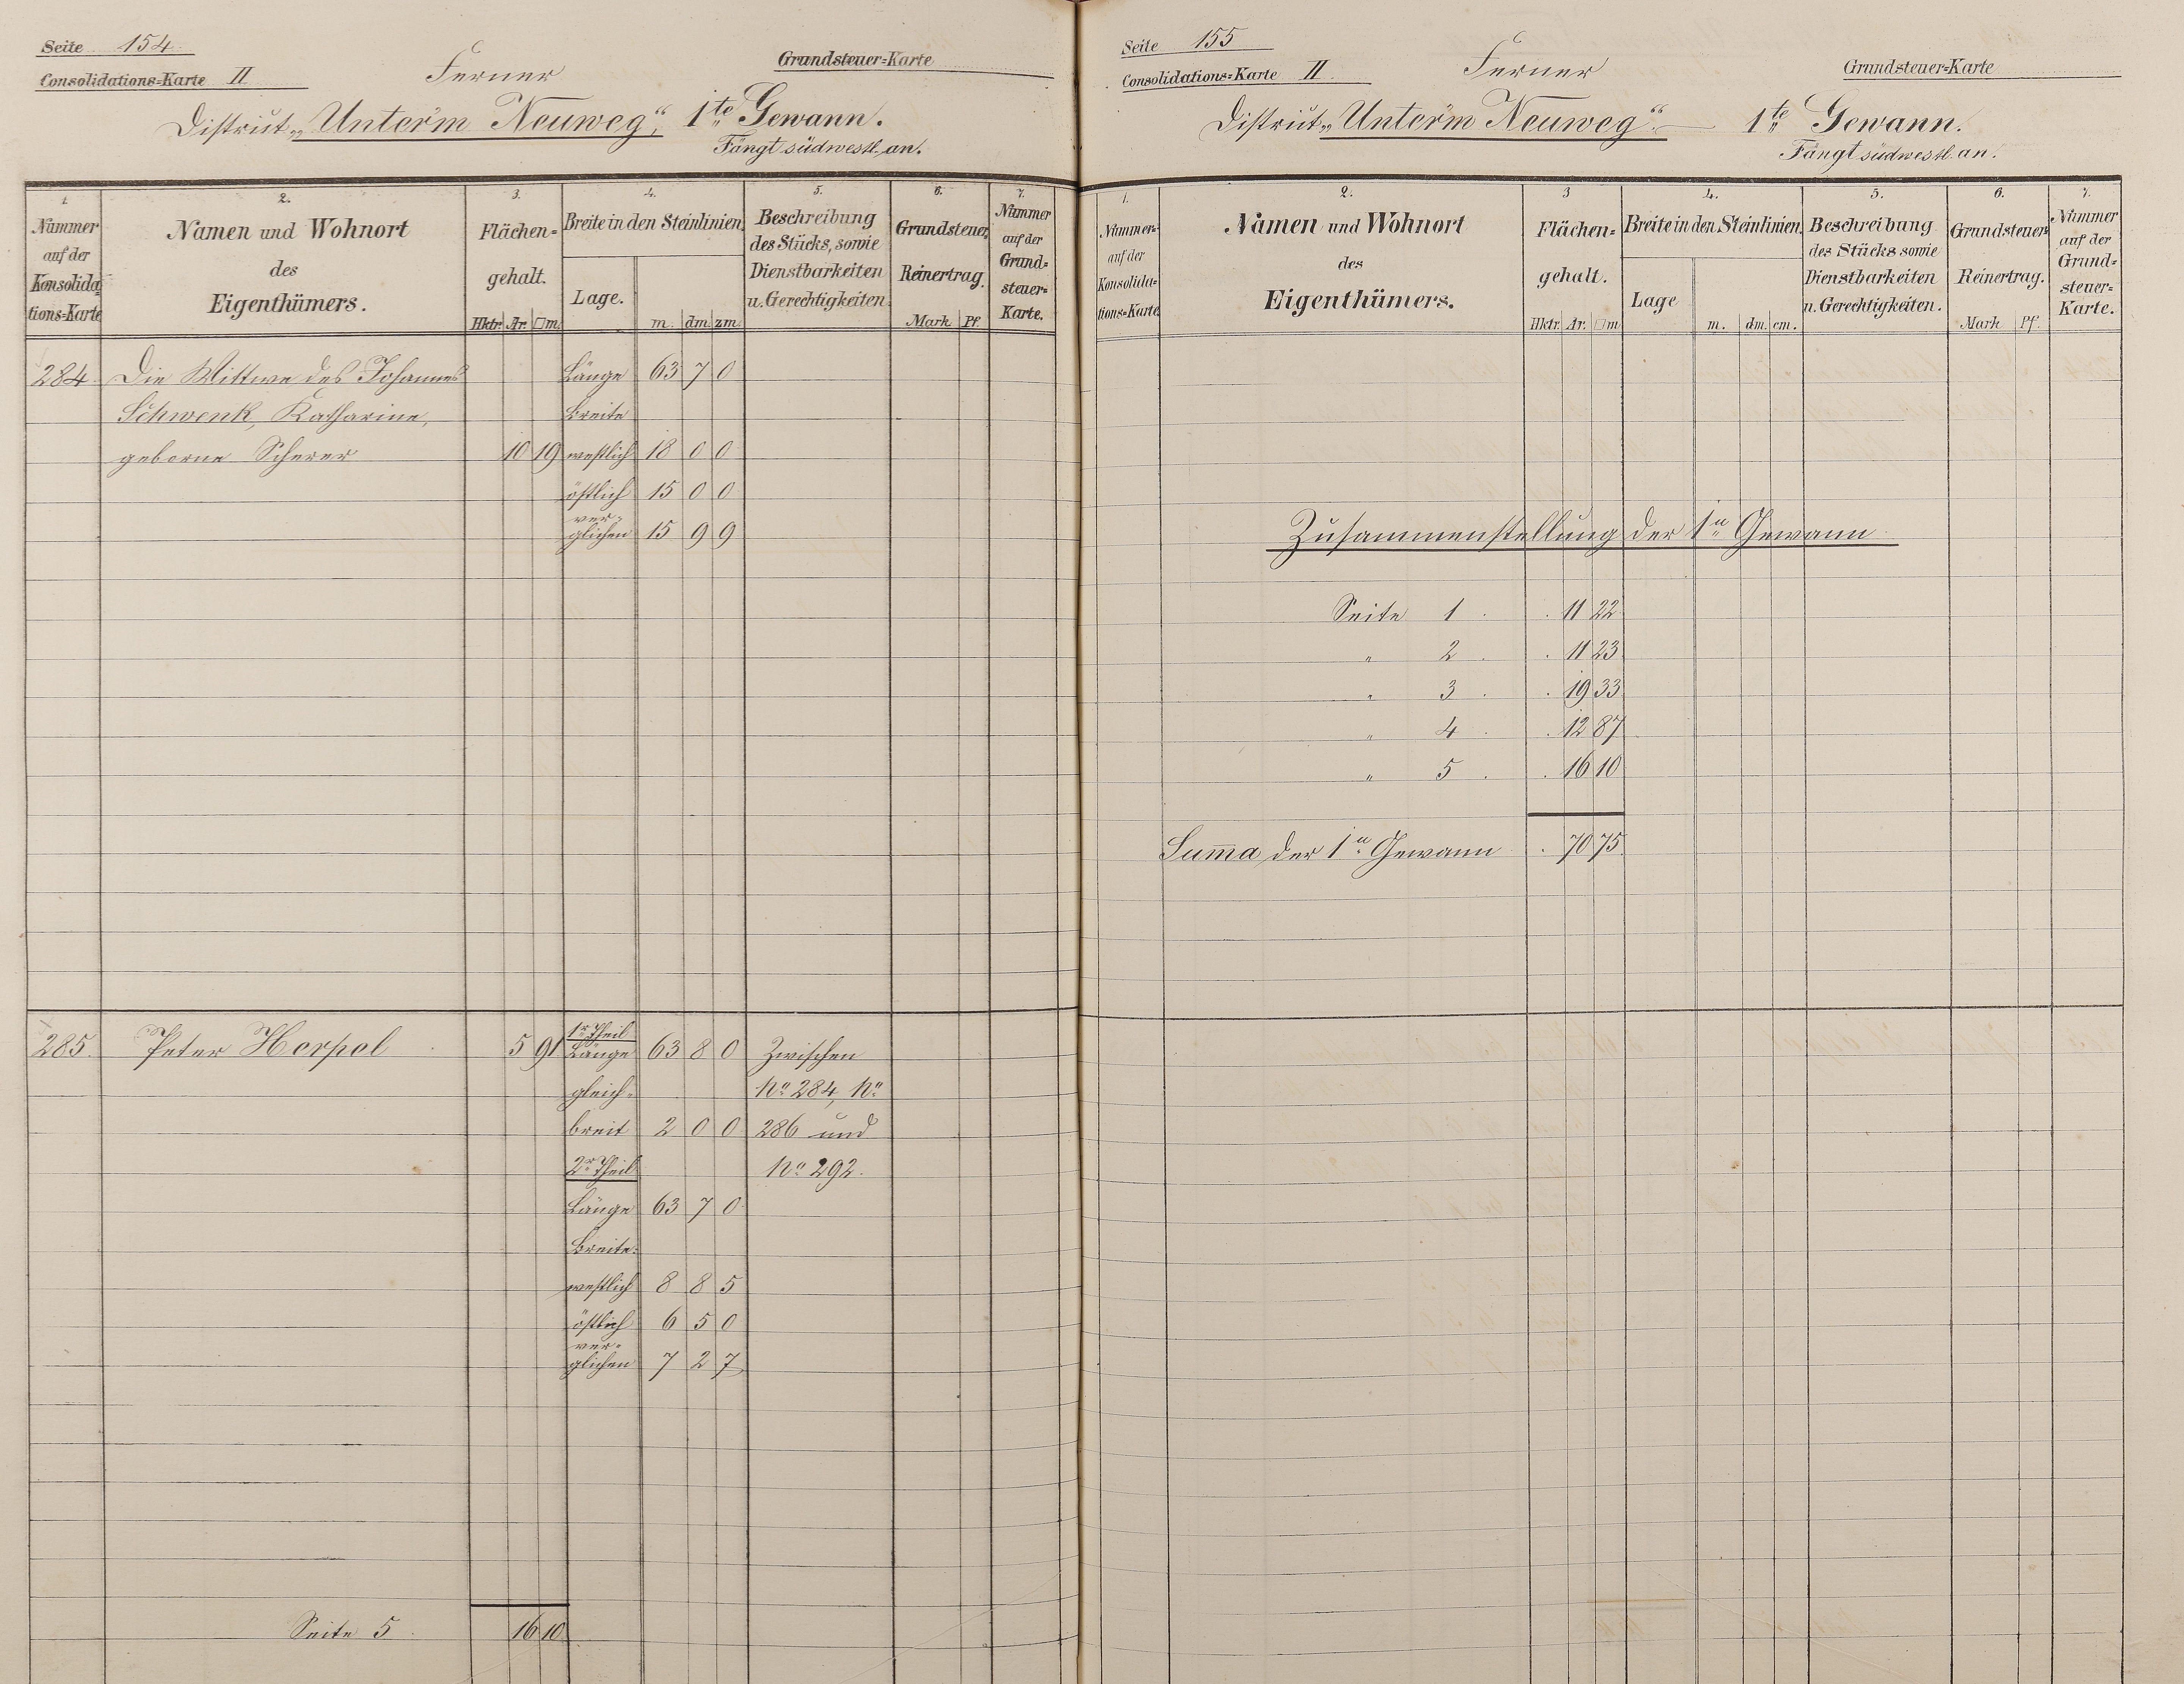 Seite 154
Consolidations=Karte II
Ferner
Grundsteuer=Karte
District „Unter'm Neuweg“, 1te Gewann.
Fängt südwestl. an.
1. 2. 3. 4. 5. 6. 7.
Nummer auf der Konsolida=tions=Karte
Namen und Wohnort
des
Eigenthümers.
Flächen=
gehalt.
Hktr. Ar. □m.
Breite in den Steinlinien.
Lage.
m. dm. zm.
Beschreibung
des Stücks, sowie
Dienstbarkeiten
u. Gerechtigkeiten.
Grundsteuer
Reinertrag.
Mark Pf.
Nummer
auf der
Grund=
steuer=
Karte.
284. Die Wittwe des Johannes Länge 63 7 0
Schwenk, Katharine, Breite
geborne Scherer 10 19 westlich 18 0 0
östlich 15 0 0
ver=
glichen 15 9 9
1r Theil
285. Peter Herpel 5 91 Länge 63 8 0 Zwischen
gleich= No 284, No
breit 2 0 0 286 und
2r Theil No 292.
Länge 63 7 0
Breite:
westlich 8 8 5
östlich 6 5 0
ver=
glichen 7 2 7
Seite 5 16 10
Seite 155
Consolidations=Karte II
Ferner
Grundsteuer=Karte
District „Unter'm Neuweg“ — 1te Gewann.
Fängt südwestl. an.
1. 2. 3 4. 5. 6. 7.
Nummer
auf der
Konsolida=
tions=Karte
Namen und Wohnort
des
Eigenthümers.
Flächen=
gehalt.
Hktr. Ar. □m
Breite in den Steinlinien.
Lage
m. dm. cm.
Beschreibung
des Stücks sowie
Dienstbarkeiten
u. Gerechtigkeiten.
Grundsteuer
Reinertrag.
Mark Pf.
Nummer
auf der
Grund=
steuer=
Karte.
Zusammenstellung der 1n Gewann
Seite 1 . . 11 22
" 2 . . 11 23
" 3 . . 19 33
" 4 . . 12 87
" 5 . . 16 10
Suma der 1n Gewann . 70 75